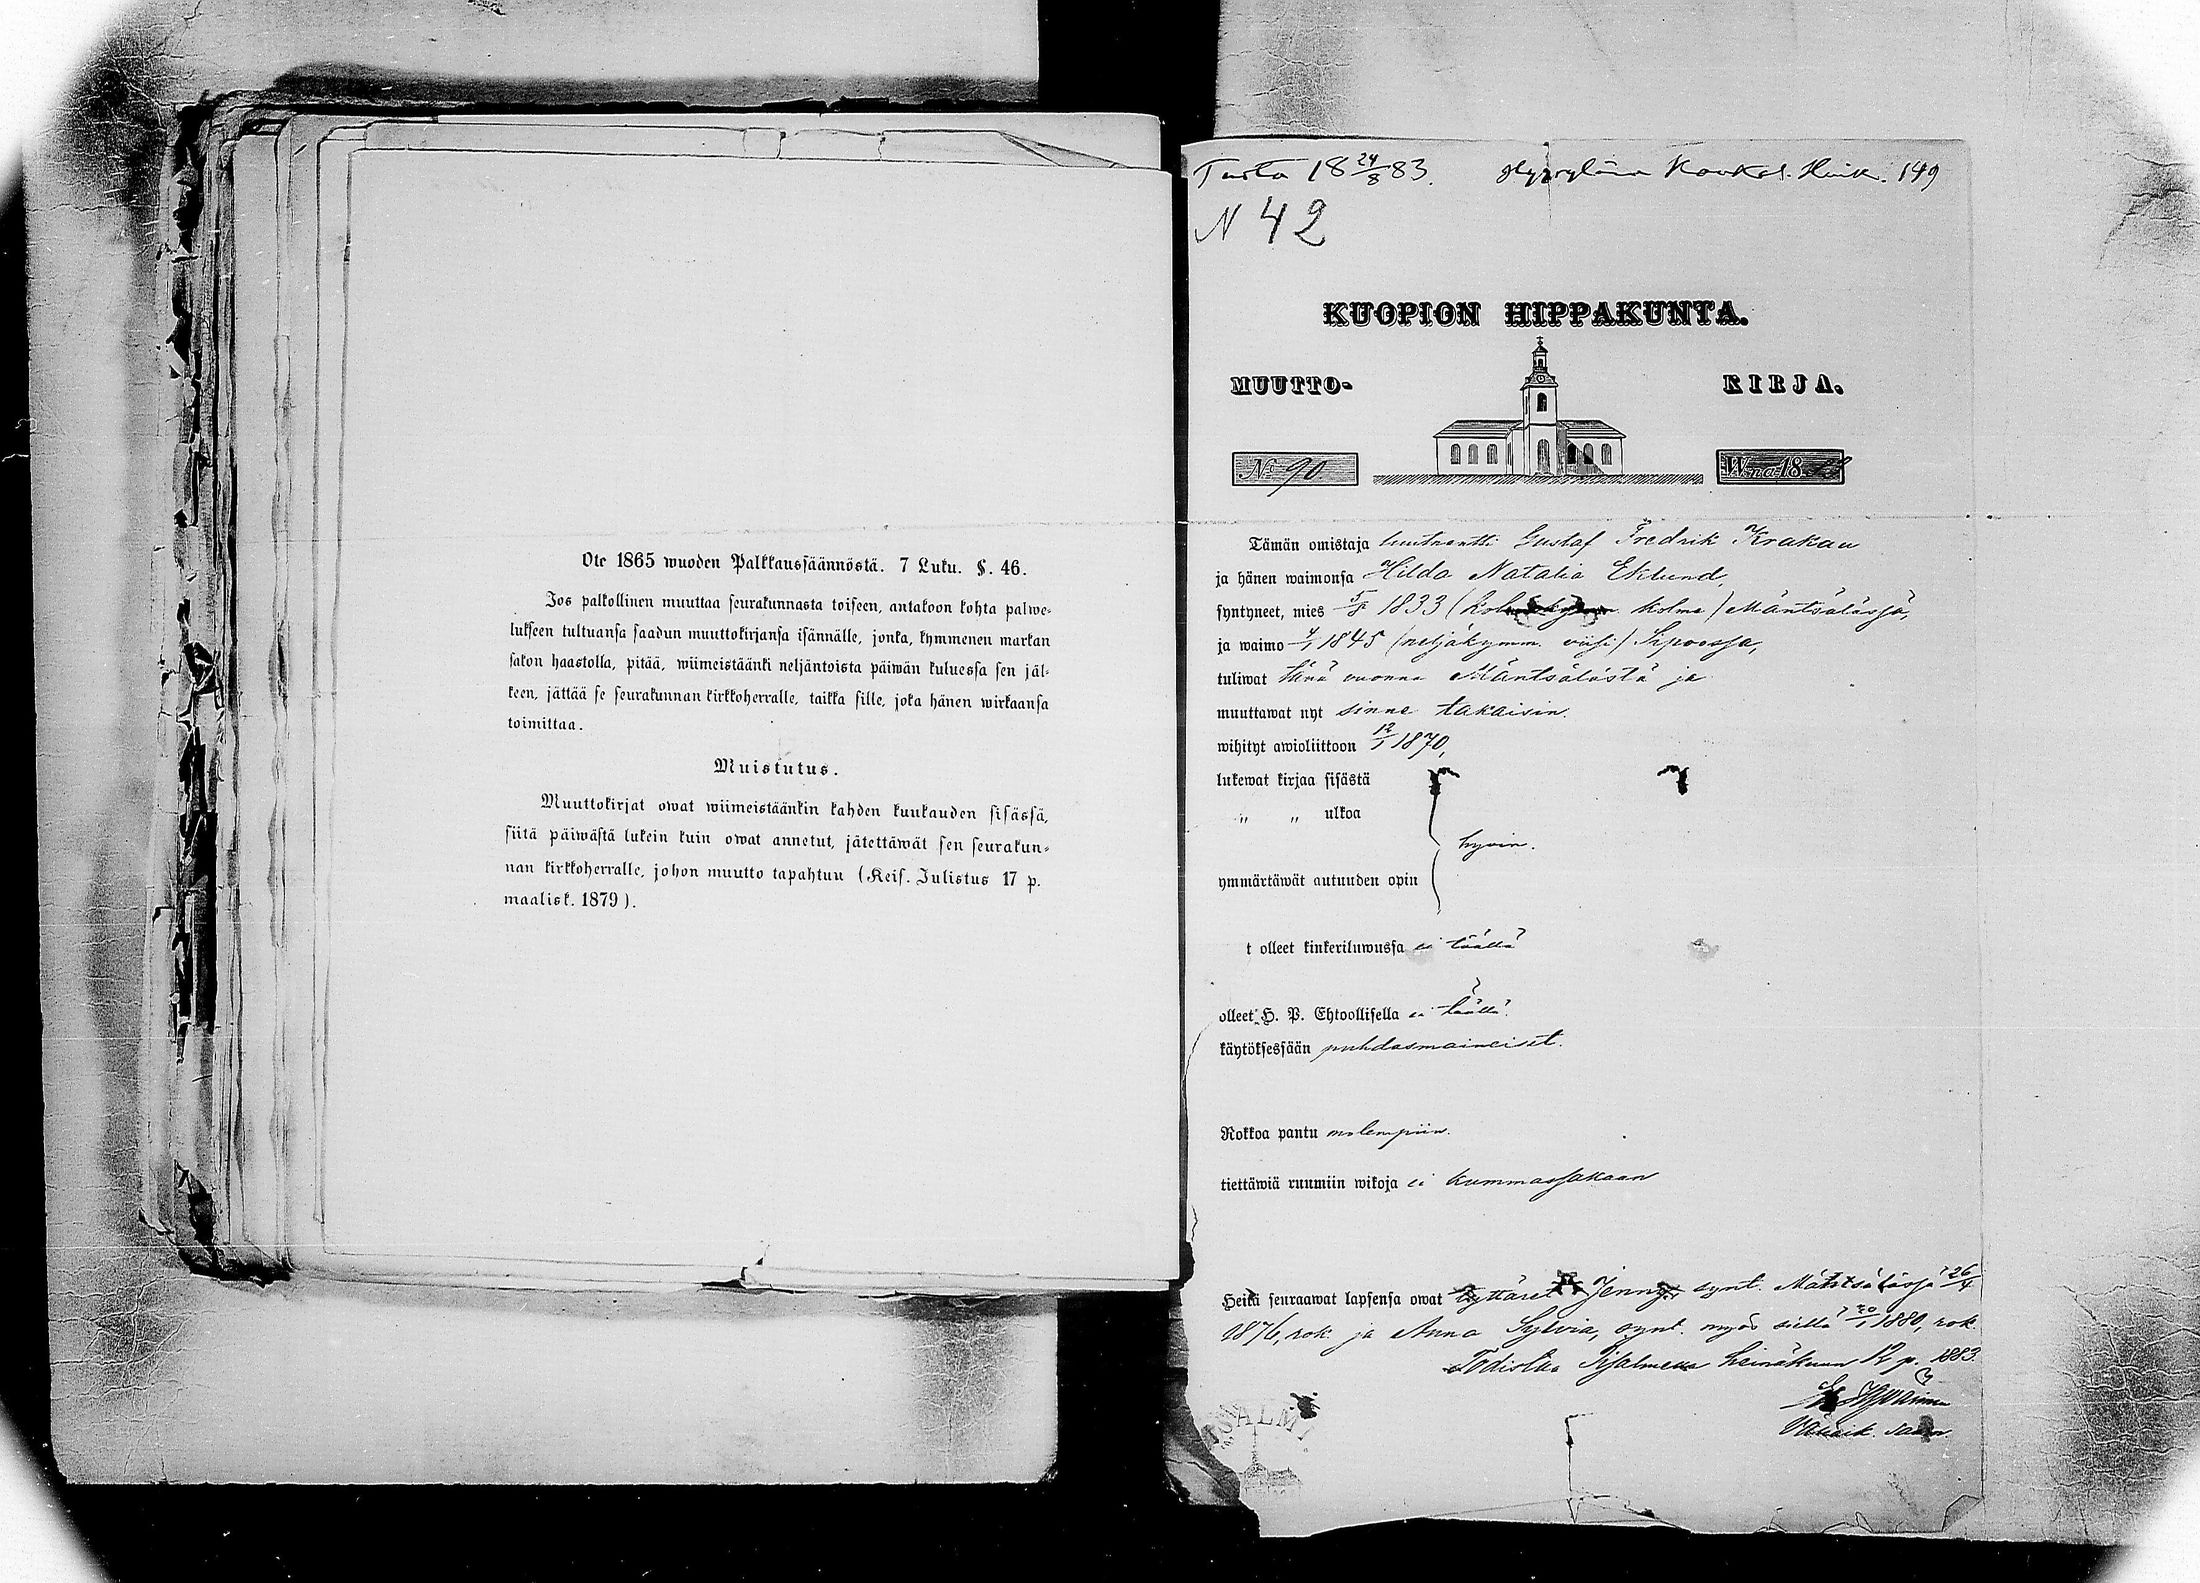 Ote 1865 wuoden Palkkaussäännöstä. 7 Luku. §. 46.
Jos palkollinen muuttaa seurakunnasta toiseen, antakoon kohta palwe-
lukseen tultuansa saadun muuttokirjansa isännälle, jonka, kymmenen markan
sakon haastolla, pitää, wiimeistäänki neljäntoista päiwän kuluessa sen jäl-
keen, jättää se seurakunnan kirkkoherralle, taikka sille, joka hänen wirkaansa
toimittaa.
Muistutus.
Muuttokirjat owat wiimeistäänkin kahden kuukauden sisässä,
siitä päiwästä lukein kuin owat annetut, jätettäwät sen seurakun-
nan kirkkoherralle, johon muutto tapahtuu (Keis. Julistus 17 p.
maalisk. 1879).
18 24/8 83. 149
N 42
KUOPION HIPPAKUNTA.
MUUTTO- KIRJA.
No 90 W:na 18 83
Tämän omistaja luutnantti Gustaf Fredrik Krakau
ja hänen waimonsa Hilda Natalia Eklund,
syntyneet, mies 5/8 1833 ( kolme) Mäntsälässä,
ja waimo 1845 (neljäkymm. viisi) Sipoossa,
tuliwat tänä vuonna Mäntsälästä ja
muuttawat nyt sinne takaisin.
wihityt awioliittoon 12/1 1870,
lukewat kirjaa sisästä
" " ulkoa
hyvin.
ymmärtäwät autuuden opin
t olleet kinkeriluwussa ei täällä
olleet H. P. Ehtoollisella ei täällä.
käytöksessään puhdasmaineiset.
Rokkoa pantu molempiin.
tiettäwiä ruumiin wikoja ei kummassakaan
Heitä seuraawat lapsensa owat tyttäret Jenny, synt. Mäntsälässä 26/4
1876, rok. ja Anna Sylvia, synt. myös siellä 20/1 1880, rok.
Todistaa Iisalmessa heinäkuun 12 p. 1883.